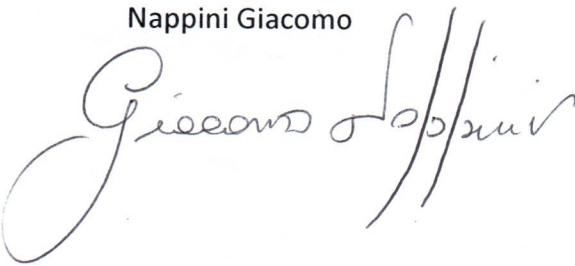 Nappini Giacomo
Giacomo Nappini